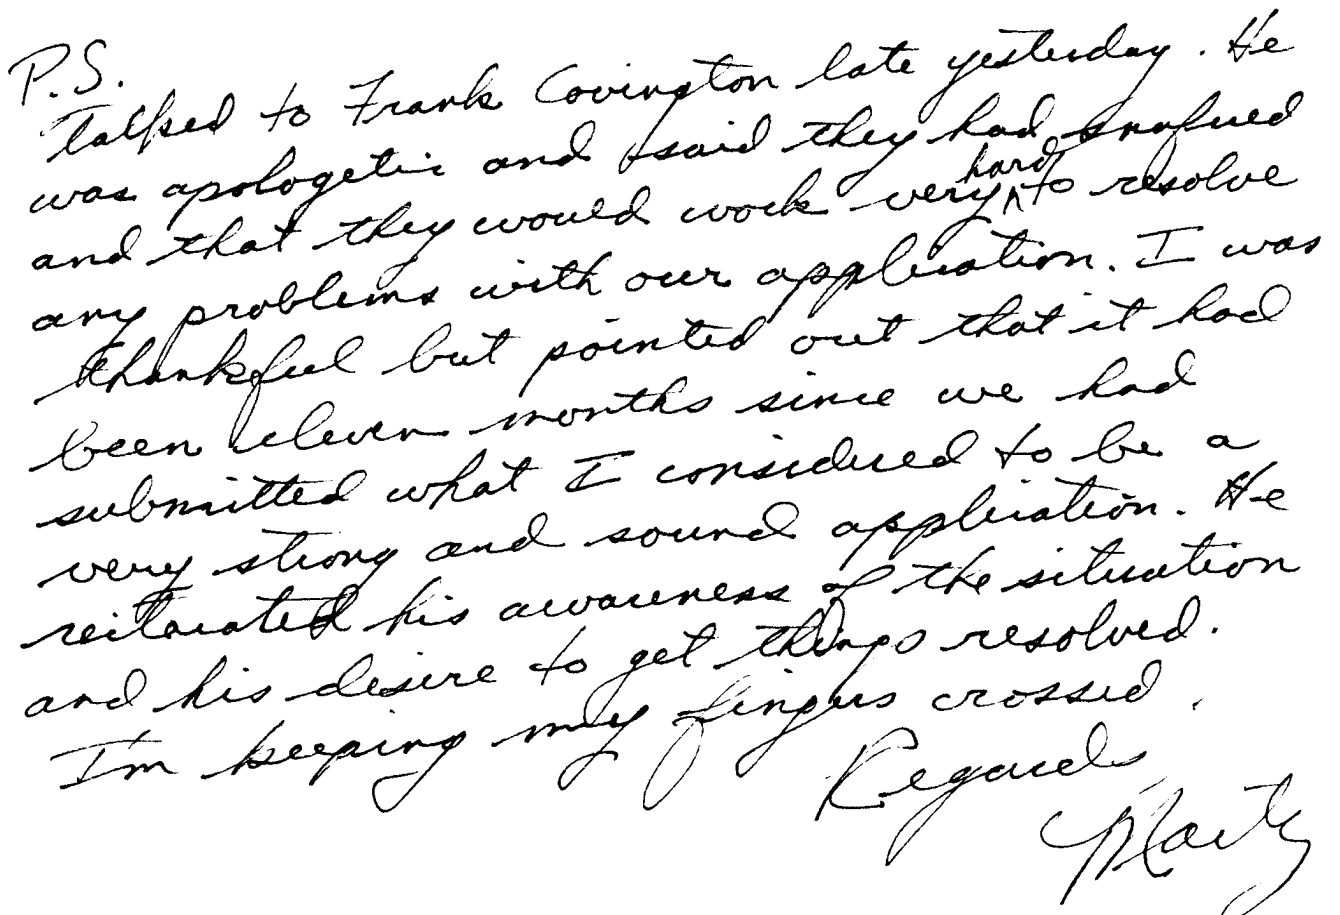 P.S.
Talked to Frank Covington late yesterday. He
was apologetic and said they had snafued
and that they would work very hard to resolve
any problems with our application. I was
thankful but pointed out that it had
been eleven months since we had
submitted what I considered to be a
very strong and sound application. He
reitarated his awareness of the situation
and his desire to get things resolved.
I'm keeping my fingers crossed.
Regards
Marty